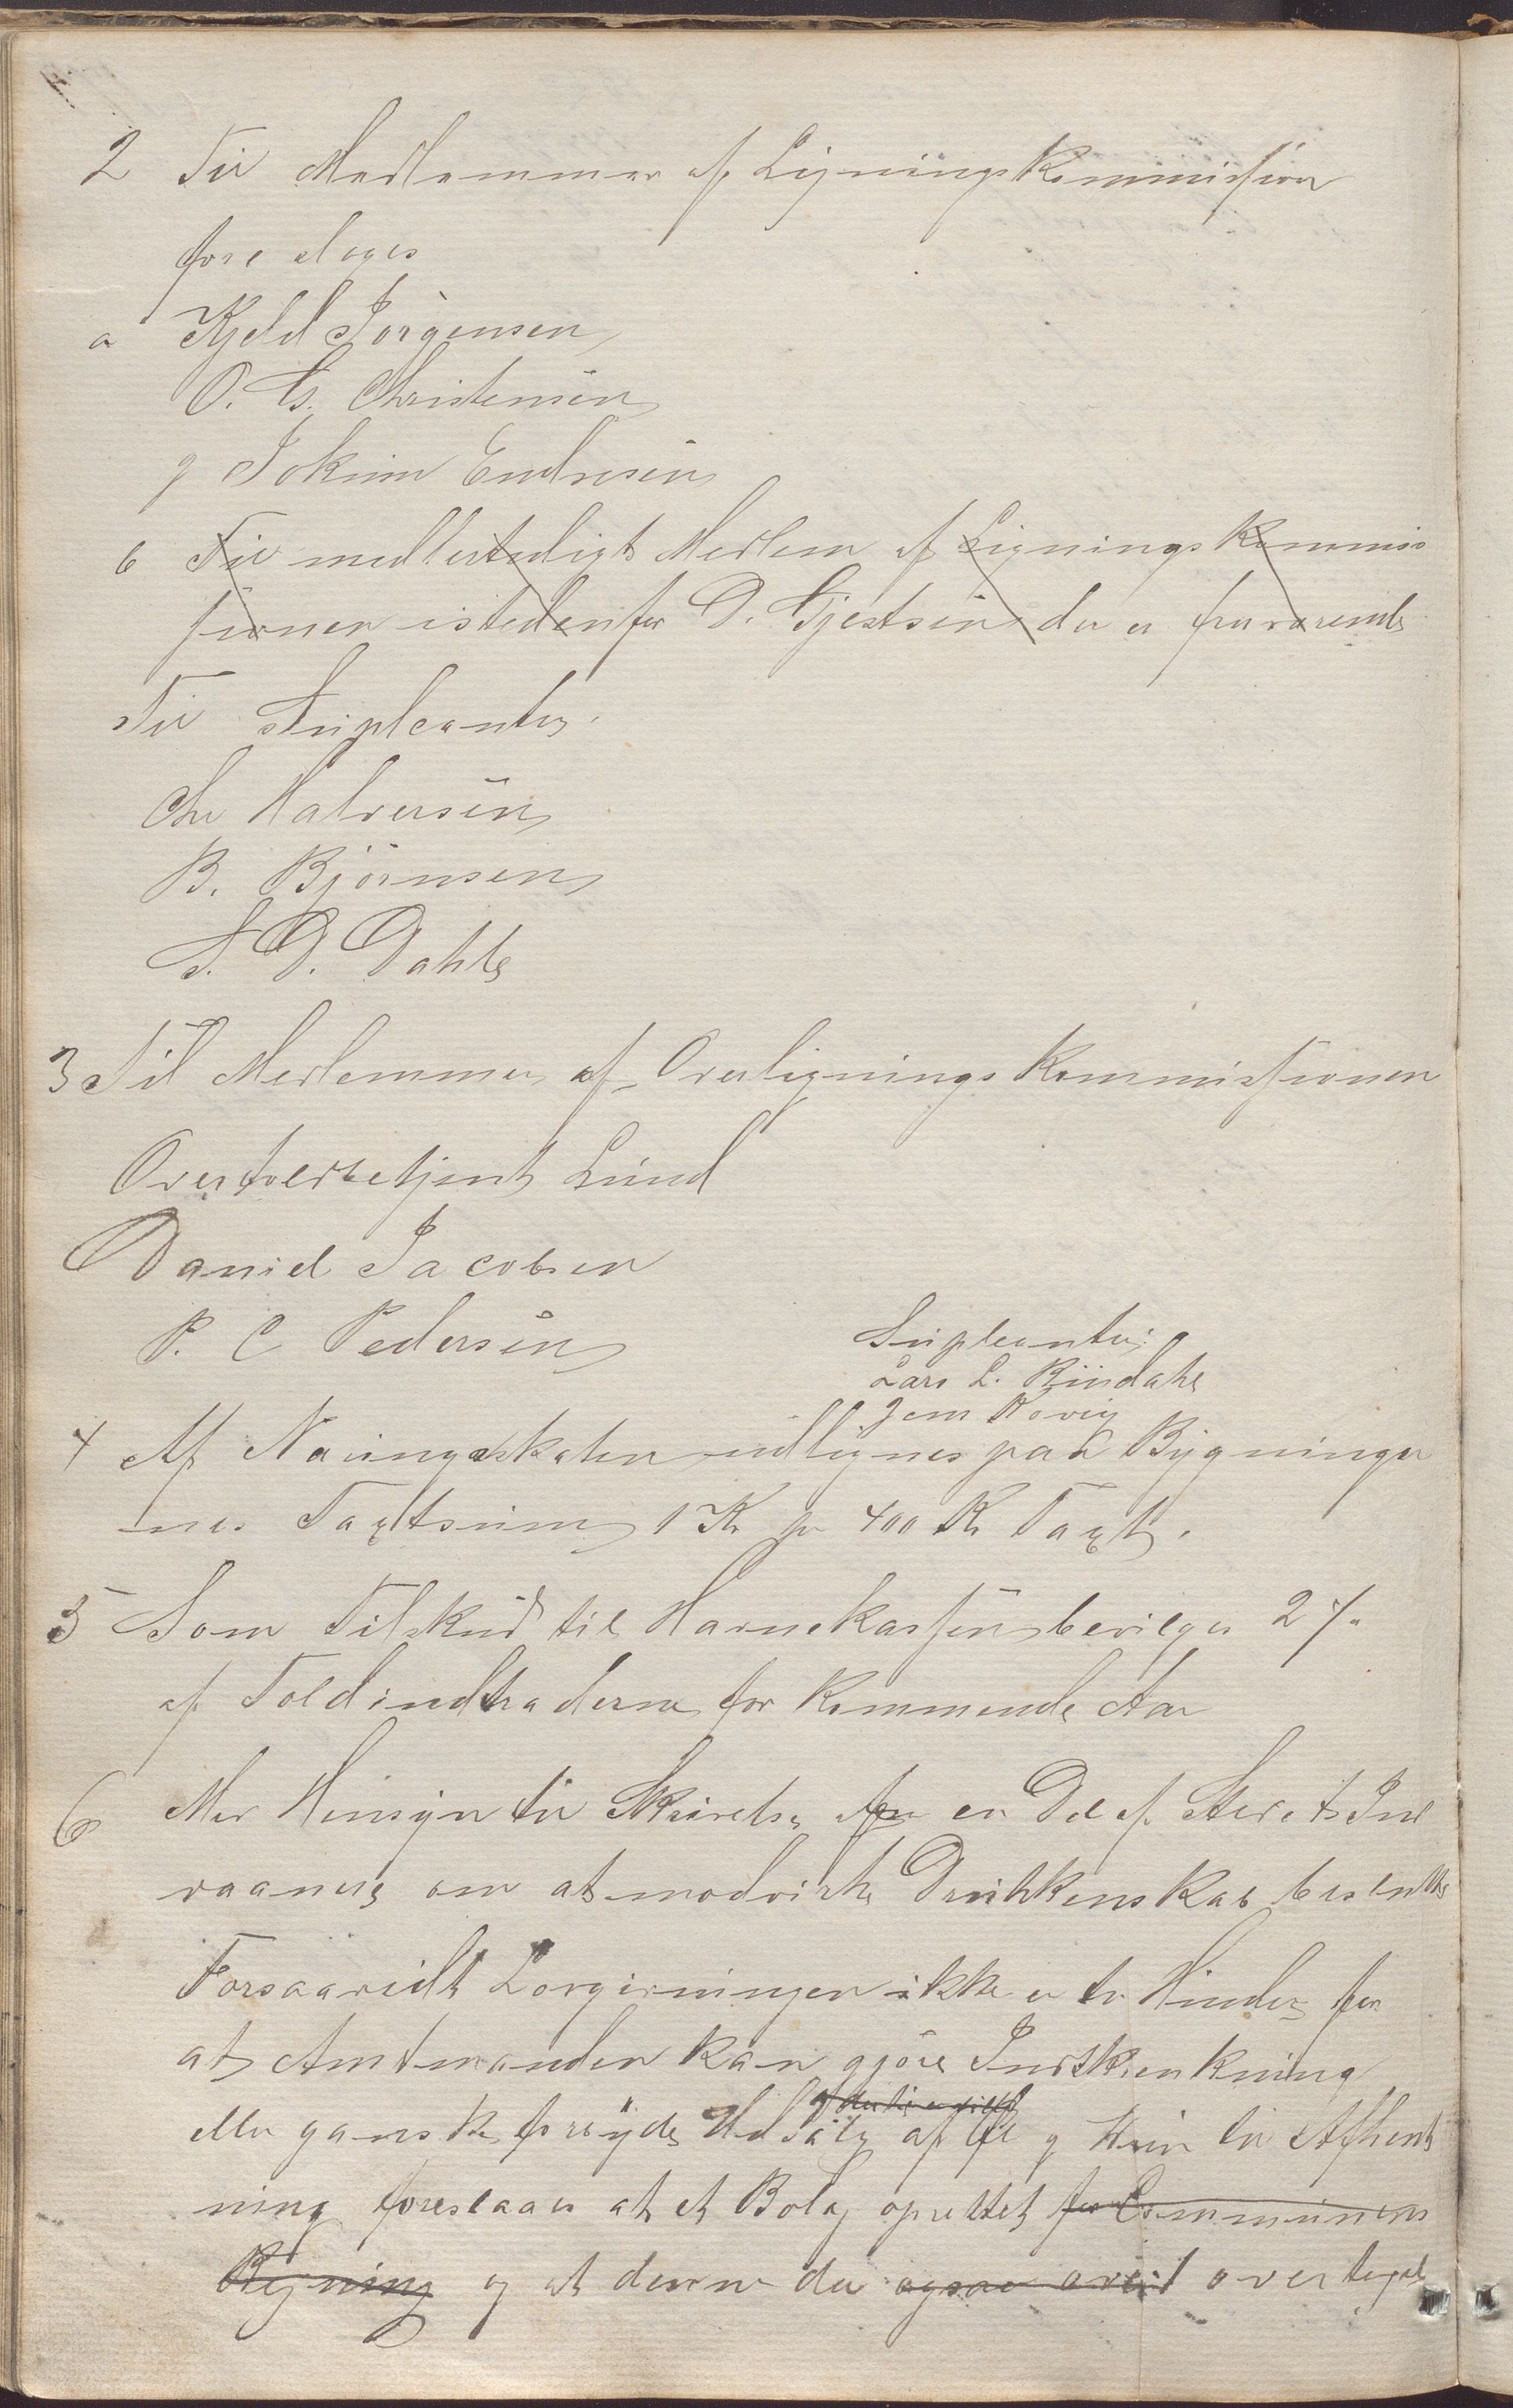 2 Til Medlemmer af Ligningskommission
foreslaaes
a Kjeld Jörgensen
O. G. Christensen
g Jokum Endresen
b Til medlertidigt Medlem af Lignings Kommis
sionen istedenfor D. Gjestsen der er fraværende
Til Supleanter.
Chr Halvorsen
B. Björnsen
S. D. Dahle
3 Til Medlemmer af Overlignings Kommissionen
Overtoldbetjent Lund
Daniel Jacobsen
P. C Pedersen
Supleanter:
Lars L. Rindahl
Jens Rövig
4 Af Næringsskatten udlignes paa Bygninger
nes Taxtsum 1 Kr pr 400 Kr Taxt.
5 Som Tilskud til Havnekassen bevilges 2 %
af Toldindtraderne for kommende Aar
6 Med Hensyn til Skrivelse fra en Del af Stedets Ind
vaanere om at modvirke Drukkenskab besluttes
Forsaavidt Lovgivningen ikke er til Hinder for
at Amtmanden kan gjöre Indskrænkning
eller ganske forbyde Udsalg af Öl g Vin til Afhent
ning foreslaaes at et Bolag oprettet for Communens
Regning og at denne da ogsaa overtaget